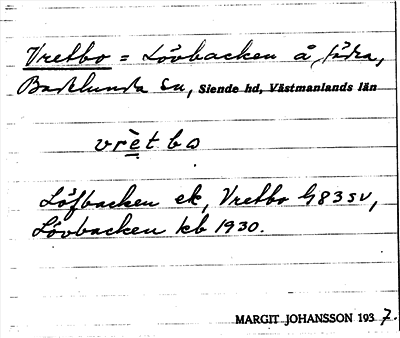 Vretbo = Lövbacken å södra,
Badelunda sn, Siende hd, Västmanlands län
vrètbω
Löfbacken ek, Vretbo h 83 sv,
Lövbacken kb 1930.
MARGIT JOHANSSON 1937.